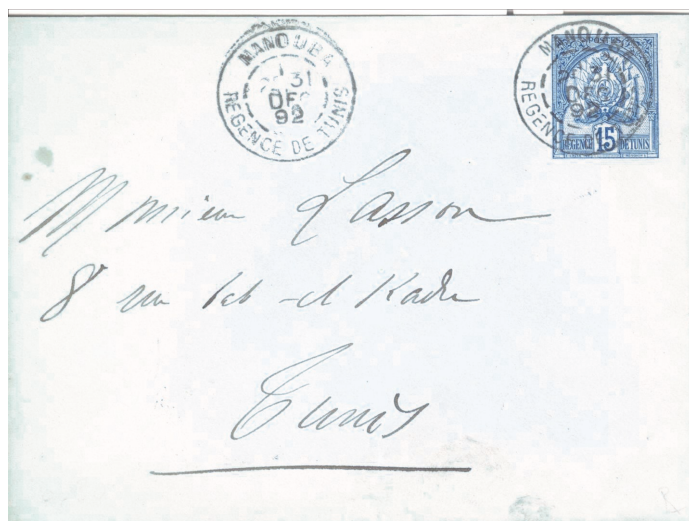 MANOUBA
31
DEC
92
REGENCE DE TUNIS
MANOUBA
31
DEC
92
REGENCE DE TUNIS
REGENCE 15 DE TUNIS
Monsieur Lasson
8 rue Bab-el Kadra
Tunis